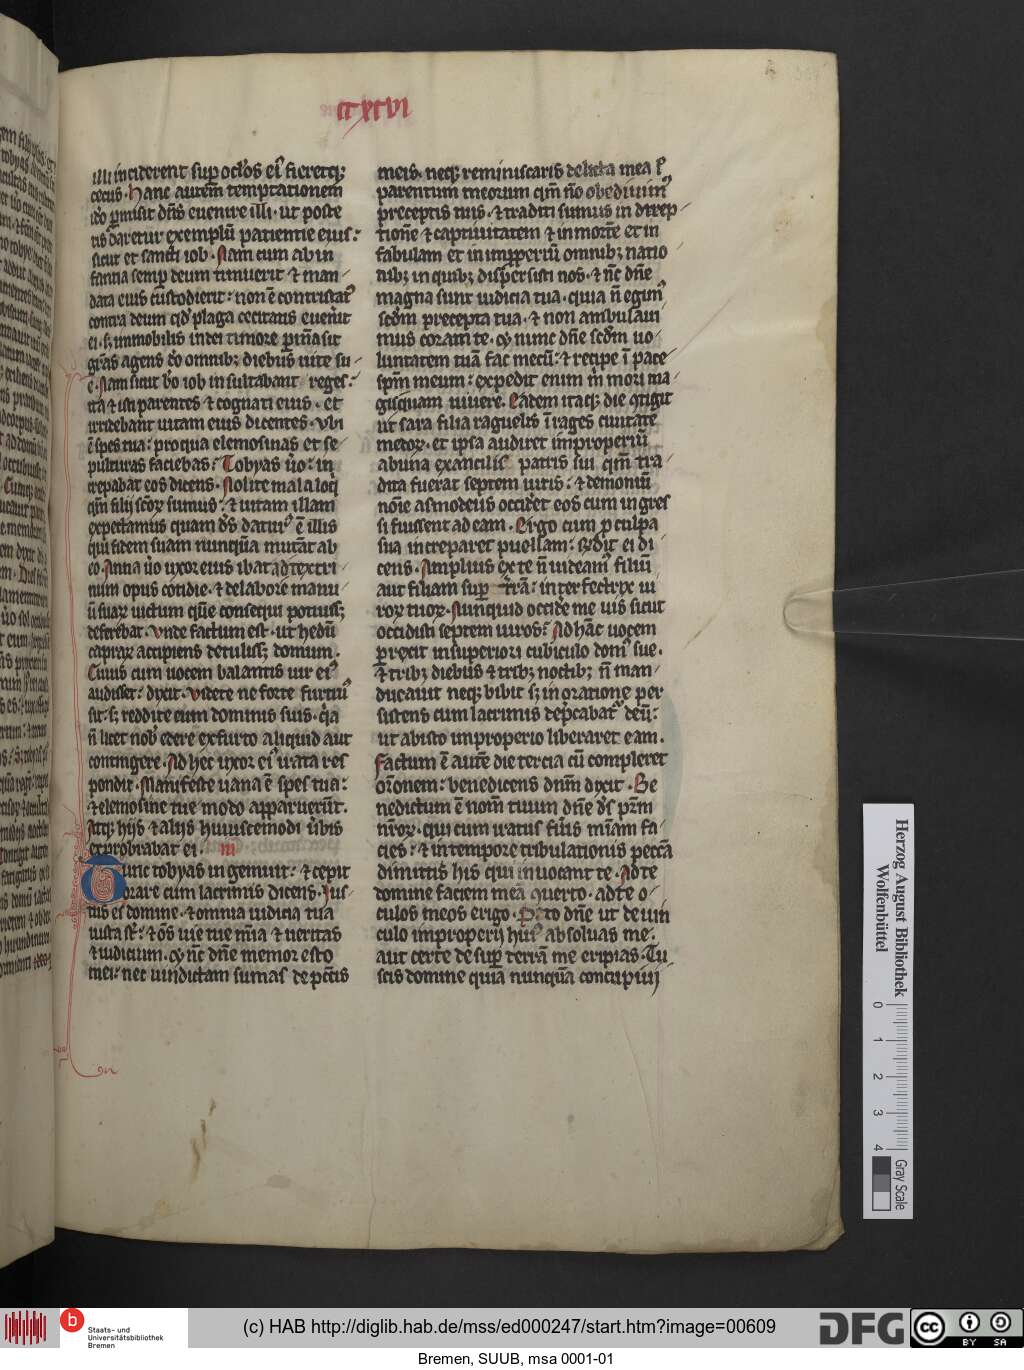 cc xcvi
illi inciderent sup oclos ei fieretq;
cecus. Hanc autem temptationem
ido pmisit dns euenire illi. ut poste
ris daretur exemplu patientie eius:
sicut et sancti iob. Nam cum ab in
fantia semp deum timuerit & man
data eius custodierit: non e contristat
contra deum qd plaga cecitatis euenit
ei. s; immobilis in dei timore pmasit
gras agens do omnib; diebus uite su
e. Nam sicut bo iob insultabant reges:
ita & isti parentes & cognati eius. et
irridebant uitam eius dicentes. Vbi
e spes tua: pro qua elemosinas et se
pulturas faciebas: Tobyas uo: in
crepabat eos dicens. Nolite mala loq
qm filij scor sumus: & uitam illam
expectamus quam ds datur e illis
qui fidem suam nunqua mutat ab
eo. Anna uo uxor eius ibat ad textri
num opus cotidie. & de labore manu
u suar uictum que consequi potuiss;
deferebat. Vnde factum est. ut hedu
caprar accipiens detuliss; domum.
Cuius cum uocem balantis uir ei
audisset: dixit. Videte ne forte furtiu
sit: s; reddite eum dominis suis. qa
n licet nob edere ex furto aliquid aut
contingere. Ad hec uxor ei irata res
pondit. Manifeste uana e spes tua:
& elemosine tue modo apparuerut.
Atq; hijs & alijs huiuscemodi ubis
exprobrabat ei. iii
Tunc tobyas ingemuit: & cepit
orare cum lacrimis dicens. Jus
tus es domine. & omnia iudicia tua
iusta st: & os uie tue mia & ueritas
& iudicium. & nc dne memor esto
mei. nec uindictam sumas de pctis
meis. neq; reminiscaris delicta mea l
parentum meorum qm no obediuim
preceptis tuis. & traditi sumus in direp
tione & captiuitatem & in morte et in
fabulam et in impperiu omnib; natio
nib; in quib; dispersisti nos. & nc dne
magna sunt iudicia tua. quia n egim
scdm precepta tua. & non ambulaui
mus coram te. & nunc dne scdm uo
luntatem tua fac mecu: & recipe i pace
spm meum: expedit enim m mori ma
gisquam uiuere. Eadem itaq; die otigit
ut sara filia raguelis i rages ciuitate
medor. et ipsa audiret improperiu
ab una ex ancillis patris sui qm tra
dita fuerat septem uiris: & demoniu
noie asmodeus occidet eos cum ingres
si fuissent ad eam. Ergo cum p culpa
sua increparet puellam: rndit ei di
cens. Amplius ex te n uideam filiu
aut filiam sup tra: interfectrix ui
ror tuor. Nunquid occide me uis sicut
occidisti septem uiros: Ad hac uocem
prexit in superiori cubiculo dom sue.
& trib; diebus & trib; noctib; n man
ducauit neq; bibit s; in oratione per
sistens cum lacrimis depcabat deu:
ut ab isto improperio liberaret eam.
Factum e aute die tercia cu compleret
oronem: benedicens dnm dixit. Be
nedictum e nom tuum dne ds prm
nror. qui cum iratus fuis miam fa
cies: & in tempore tribulationis pecca
dimittis his qui inuocant te. Ad te
domine faciem mea querto. ad te o
culos meos erigo. Peto dne ut de uin
culo improperij hui absoluas me.
aut certe desup terram me eripias. Tu
scis domine quia nunqua concupiui
Herzog August Bibliothek
Wolfenbüttel
0 1 2 3 4
Gray Scale
b Staats- und
Universitätsbibliothek
Bremen
(c) HAB http://diglib.hab.de/mss/ed000247/start.htm?image=00609
DFG
cc BY SA
Bremen, SUUB, msa 0001-01